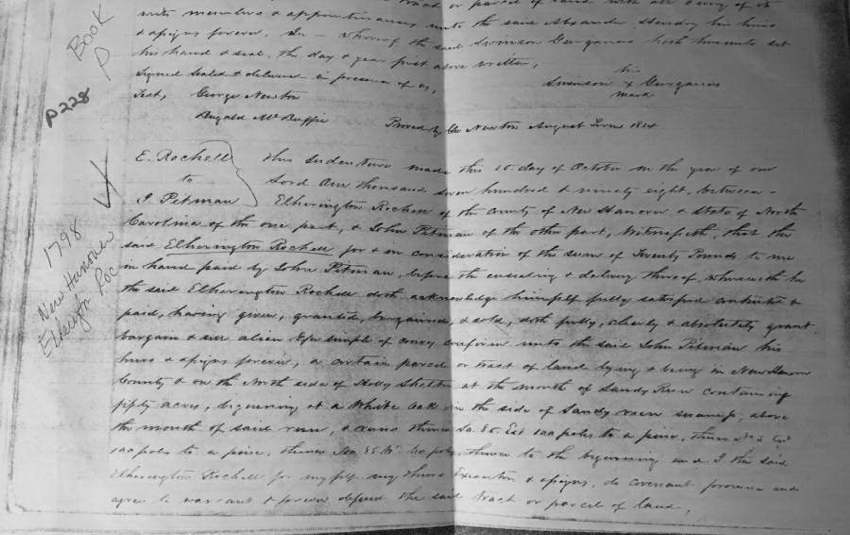 Book
P
p 228
1798
New Hanover
with members & appurtenances unto the said
& assigns forever. In whereof the said Swinson Gurganus hath hereunto set
his hand & seal, the day & year first above written,
Signed Sealed & delivered in presence of us,
his
Swinson x Gurganus
mark
Test, George Newton
Proved by Geo Newton August
E. Rochell
to
J. Pitman
This Indenture made this 10 day of October in the year of our
Lord One thousand seven hundred & ninety eight, between
Etherington Rochell of the County of New Hanover & State of North
Carolina of the one part, & John Pitman of the other part, Witnesseth, that the
said Etherington Rochell for & in consideration of the sum of Twenty Pounds to me
in hand paid by John Pitman, before the ensealing & delivery thereof, wherewith he
the said Etherington Rochell doth acknowledge himself fully satisfied contented &
paid, having given, granted, bargained, & sold, doth fully, clearly & absolutely grant
bargain & sell alien & convey confirm unto the said John Pitman his
heirs & assigns forever, a certain parcel or tract of land lying & being in New Hanover
County & on the North side of Holly Shelter at the mouth of Sandy Run containing
fifty acres, beginning at a White oak on the side of Sandy run swamp, above
the mouth of said run, & runs thence So. 85 Est 100 poles to a pine, thence
100 poles to a pine, thence poles, thence to the beginning and I the said
Etherington Rochell for myself my heirs Executors & assigns, do covenant promise and
agree to warrant & forever defend the said tract or parcel of land,